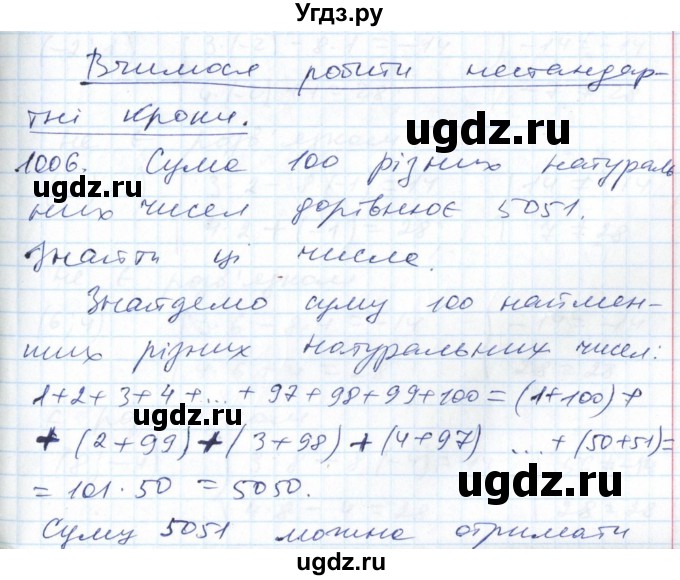 Угдз.ру
Вчимося робити нестандар-
тні кроки.
1006. Сума 100 різних натураль
них чисел дорівнює 5051.
Знайти ці числа.
Знайдемо суму 100 наймен-
ших різних натуральних чисел:
1+2+3+4+...+97+98+99+100=(1+100)+
+(2+99)+(3+98)+(4+97) ...+(50+51)=
=101·50=5050.
Суму 5051 можна отримати
ugdz.ru
ugdz.ru
ugdz.ru
ugdz.ru
ugdz.ru
ugdz.ru
ugdz.ru
ugdz.ru